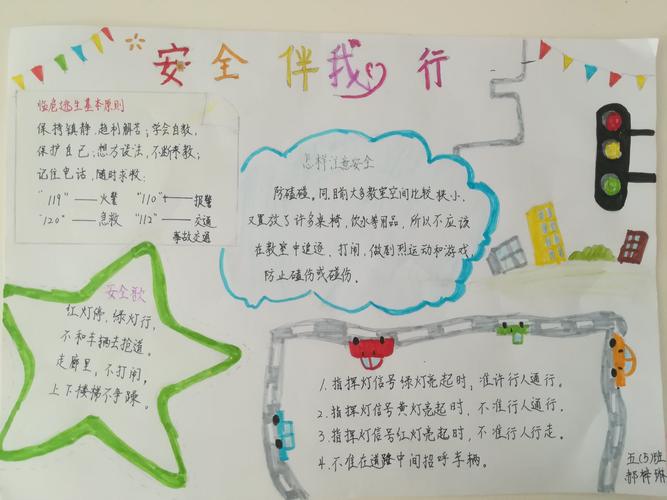 安全伴我行
临危逃生基本原则
保持镇静,趋利解害;学会自救,
保护自己;想方设法,不断求救;
记住电话,随时求救:
"119"——火警 "110"——报警
"120"——急救 "112"——交通
事故交通
怎样注意安全
防磕碰。同目前大多教室空间比较狭小,
又置放了许多桌椅,饮水等用品,所以不应该
在教室中追追、打闹,做剧烈运动和游戏,
防止磕伤或碰伤。
安全歌
红灯停,绿灯行,
不和车辆去抢道。
走廊里,不打闹,
上下楼梯不争躁。
1.指挥灯信号绿灯亮起时,准许行人通行。
2.指挥灯信号黄灯亮起时,不准行人通行。
3.指挥灯信号红灯亮起时,不准行人行走。
4.不准在道路中间招呼车辆。
五(3)班
郝梓琳